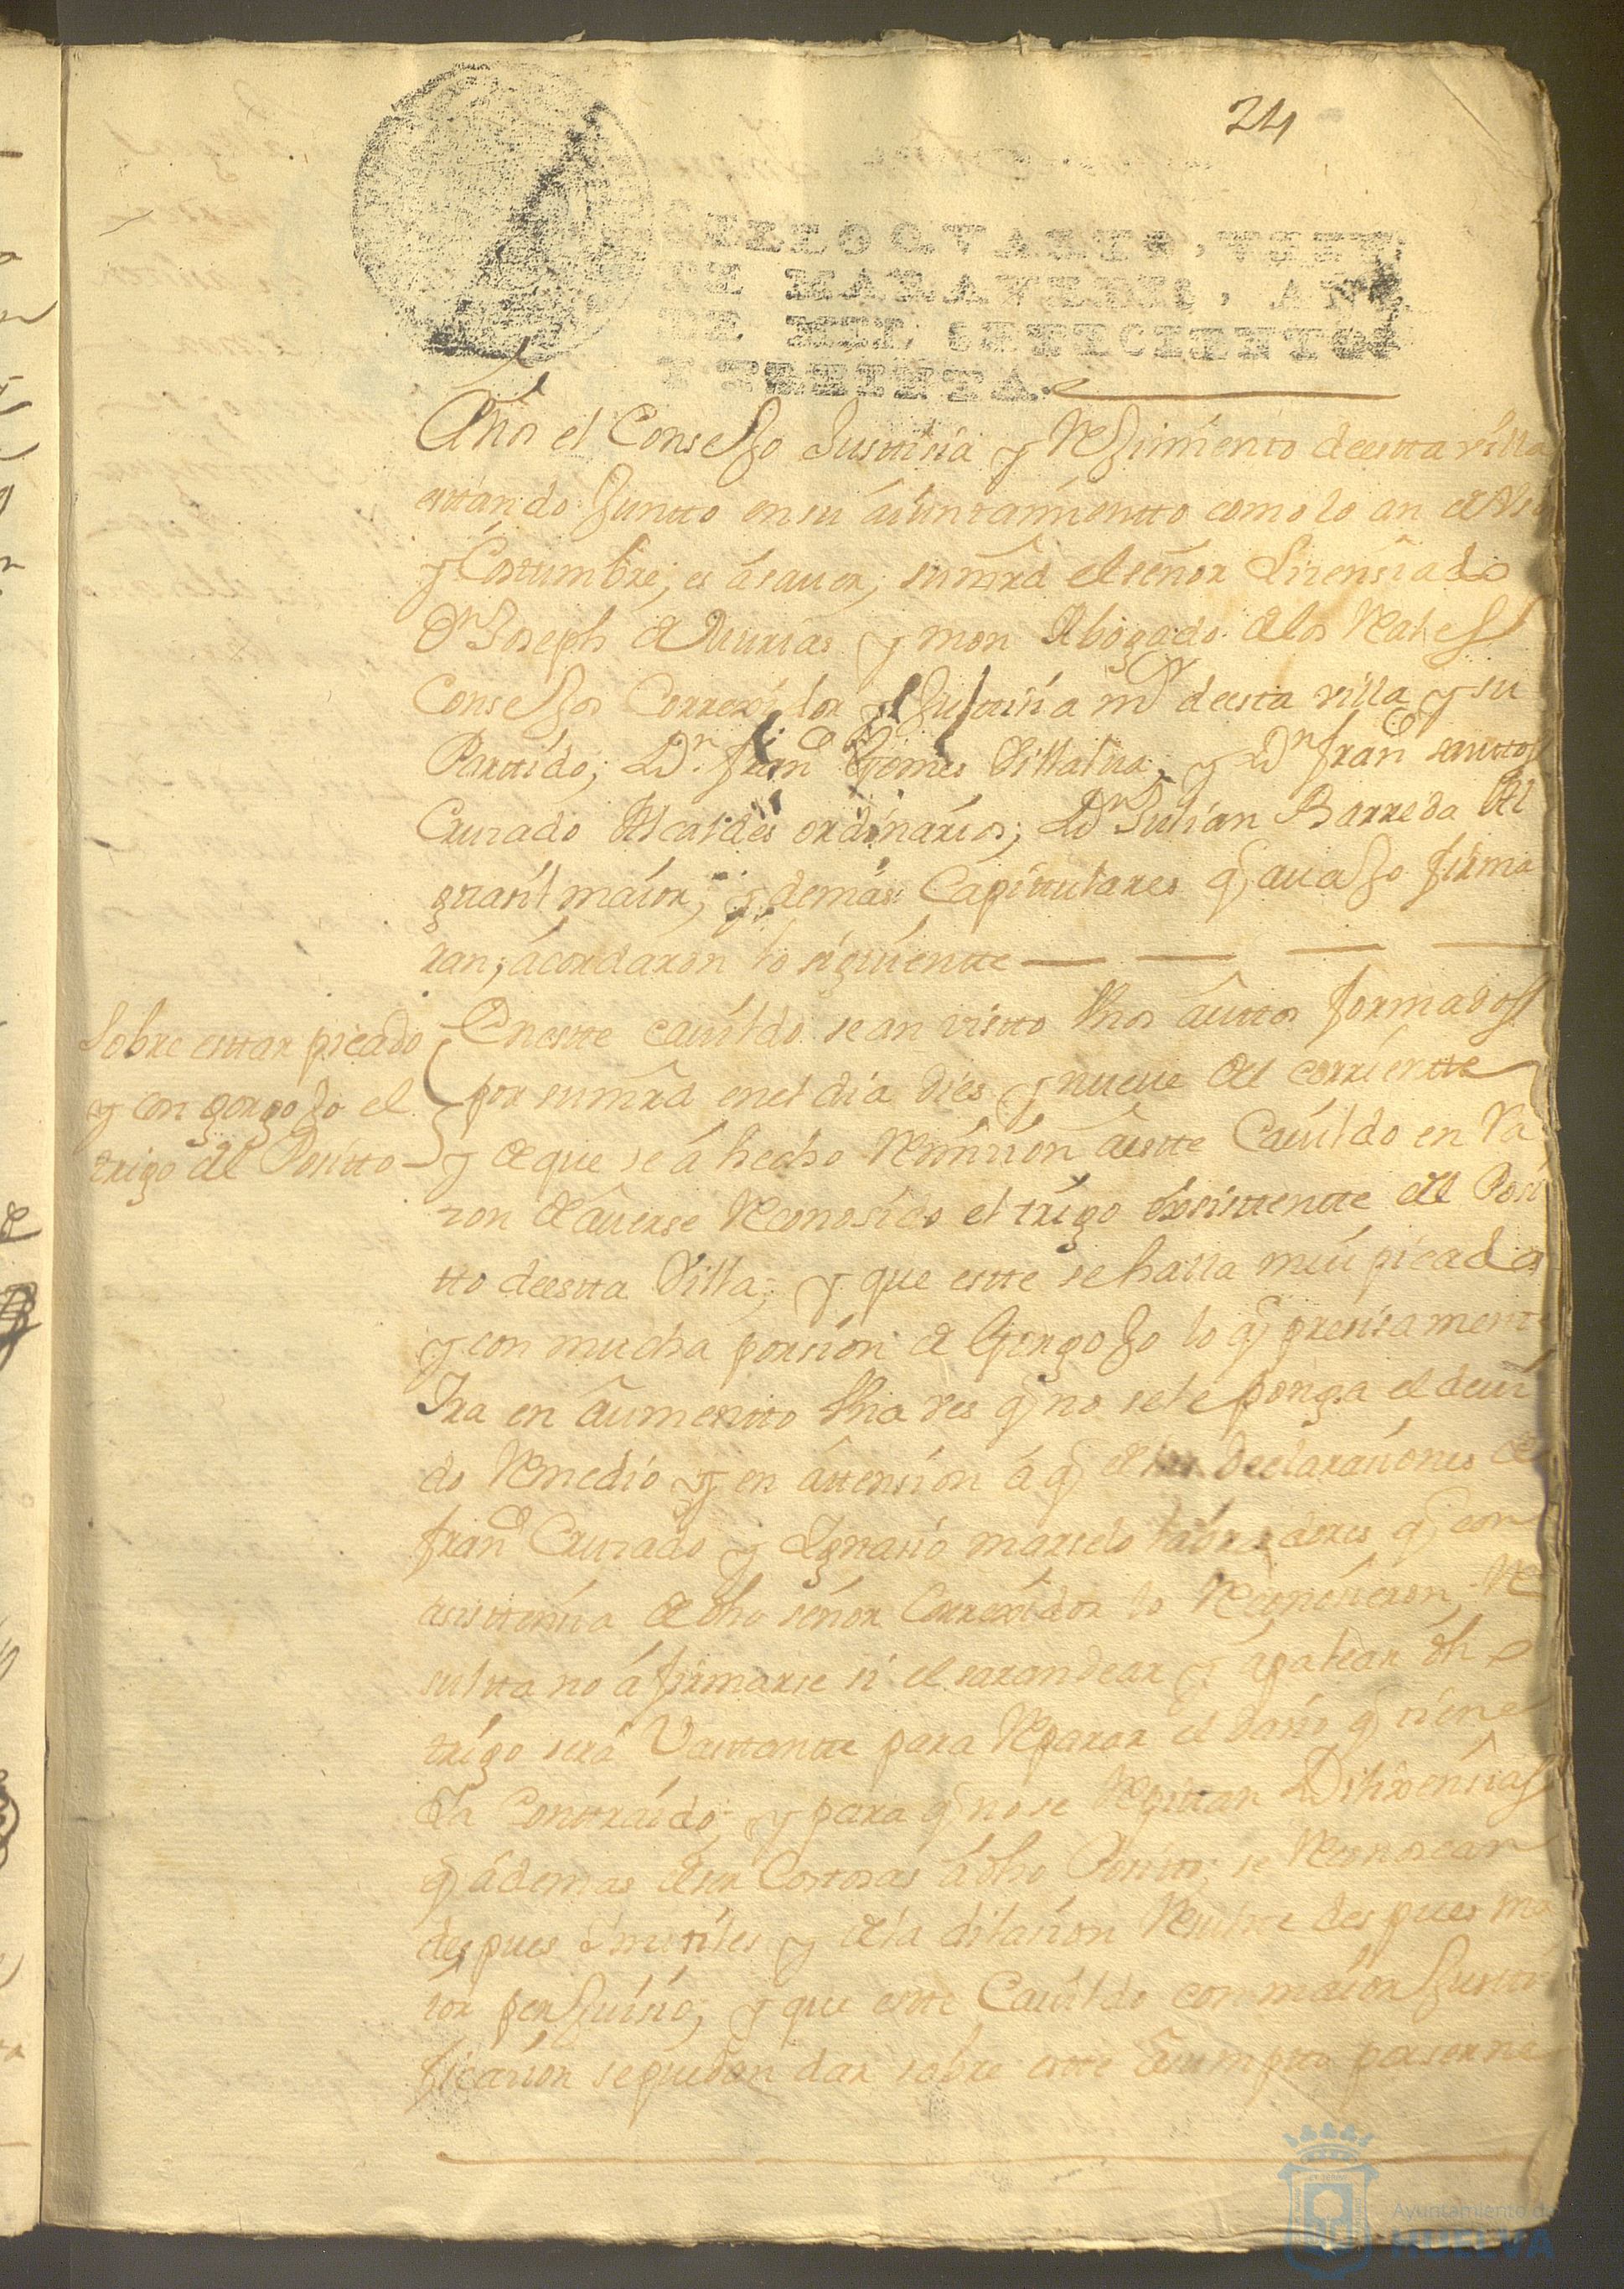 24
SELLO QVARTO, VEINTE
DE MARAVEDIS, AÑO
DE MIL SETECIENTOS
Y TREINTA.
el Conselo Justisia y Reximiento deesta villa
esttando Juntto en su aiuntamientto como lo an de Vso
y Costumbre, es á sauer, su mrd el señor Lisensiado
Dn Joseph de Murias y mon Abogado de los Rales
Consejos Correxidor y Justisia mor deesta villa y su
Parttido; Dn fran.co Gomes Villalua, y Dn fran.co santtos
Cruzado Alcaldes ordinarios; Dn Julian Barreda Al
guasil maior, y demas Capittulares q auajo firma
ran, acordaron lo siguientte
Sobre esttar picado
y con gorgojo el
trigo del Positto
En estte cauildo se an vistto dhos auttos formados
por su mrd en el dia dies y nueue del corrientte
y de que se á hecho Remision a estte Cauildo en Ra
zon de auerse Reconosido el trigo exsisttentte del Posi
tto deestta Villa, y que estte se halla mui picado
y con mucha porsion de Gorgojo lo q presisamentte
Ira en aumentto dha ves q no se le ponga el deui
do Remedio y en attension á q de las Declarasiones de
fran.co Cruzado y Ygnasio marselo labradores q con
asisttensia de dho señor Correxidor lo Reconosieron, Re
sultta no áfirmarse si el sarandear y ápalear dho
trigo será Vasttantte para Reparar el daño q tiene
Ya Conttraido, y para q no se Repittan Dilixensias
q ademas de ser Costtosas á dho Positto, se Reconoscan
despues Ynutiles y de la dilasion Resulte despues ma
ior perJuisio, y que estte Cauildo con maior Justti
ficasion se puedan dar sobre estte asumptto
Ayuntamiento de
HUELVA